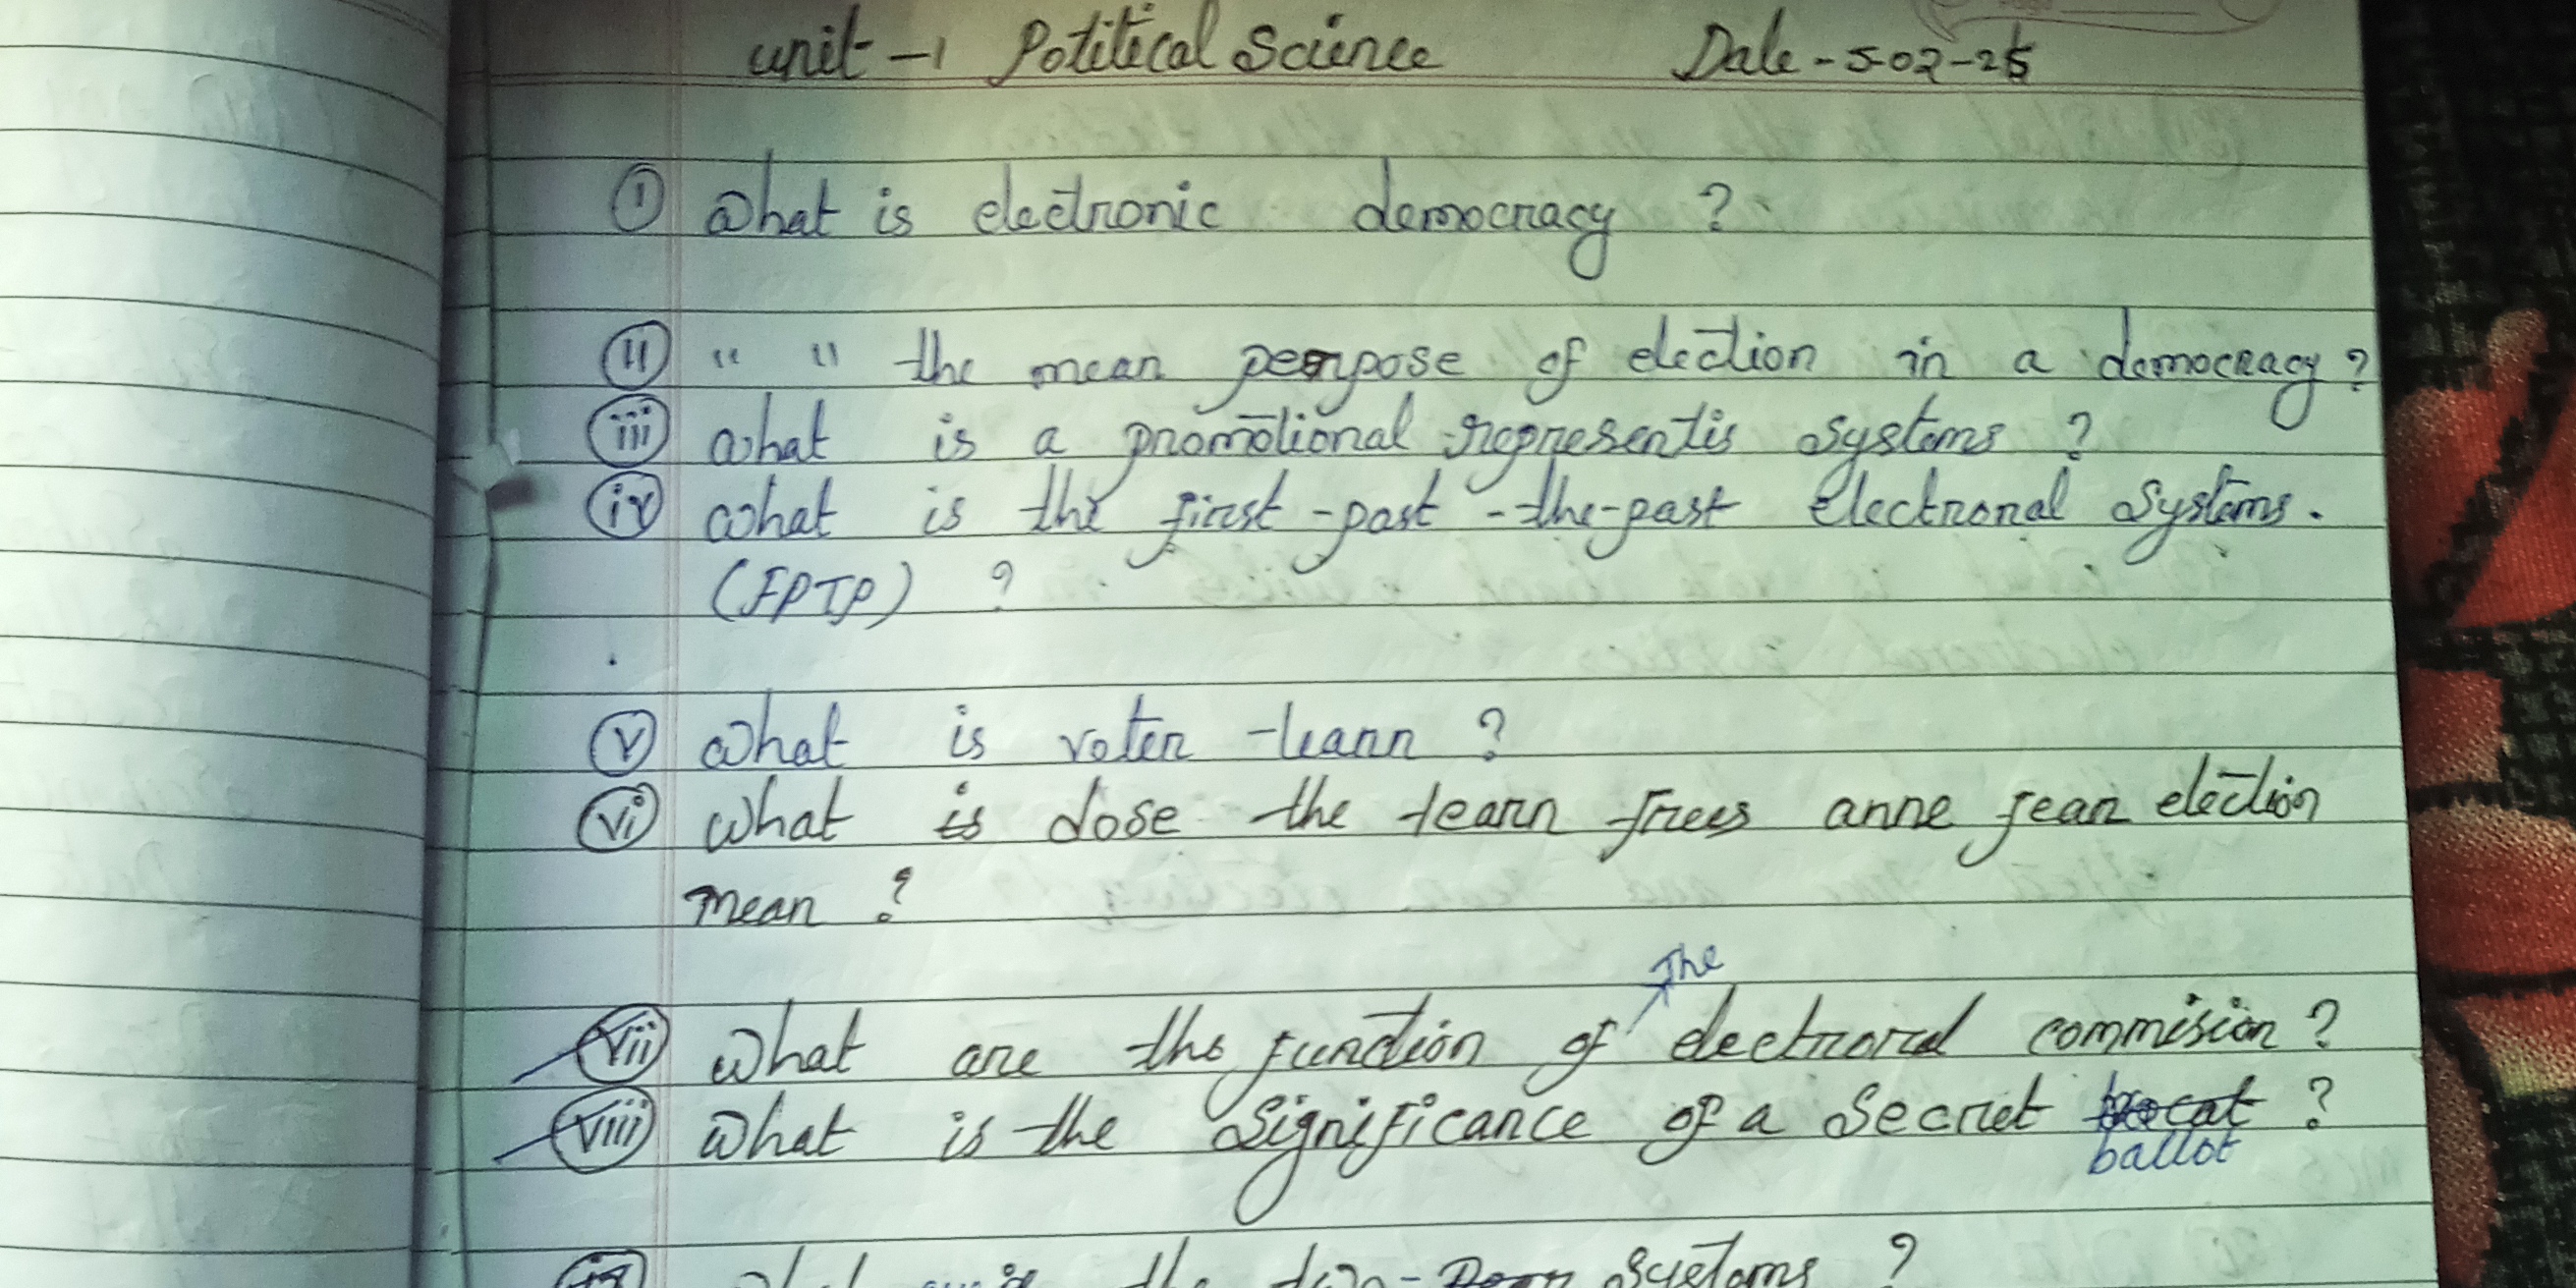 unit -1 Potitical Science Date - 5-02-25
① What is electronic democracy ?
ii " " the mean perpose of election in a democracy ?
iii what is a promotional representis systems ?
iv what is the first -past -the-past electronal systems.
(FPTP) ?
v what is voter -learn ?
vi what is dose the tearn frees anne fean election
mean ?
The
vii what are the function of electroral commision ?
viii what is the significance of a secret ?
ballot
the two- systems ?